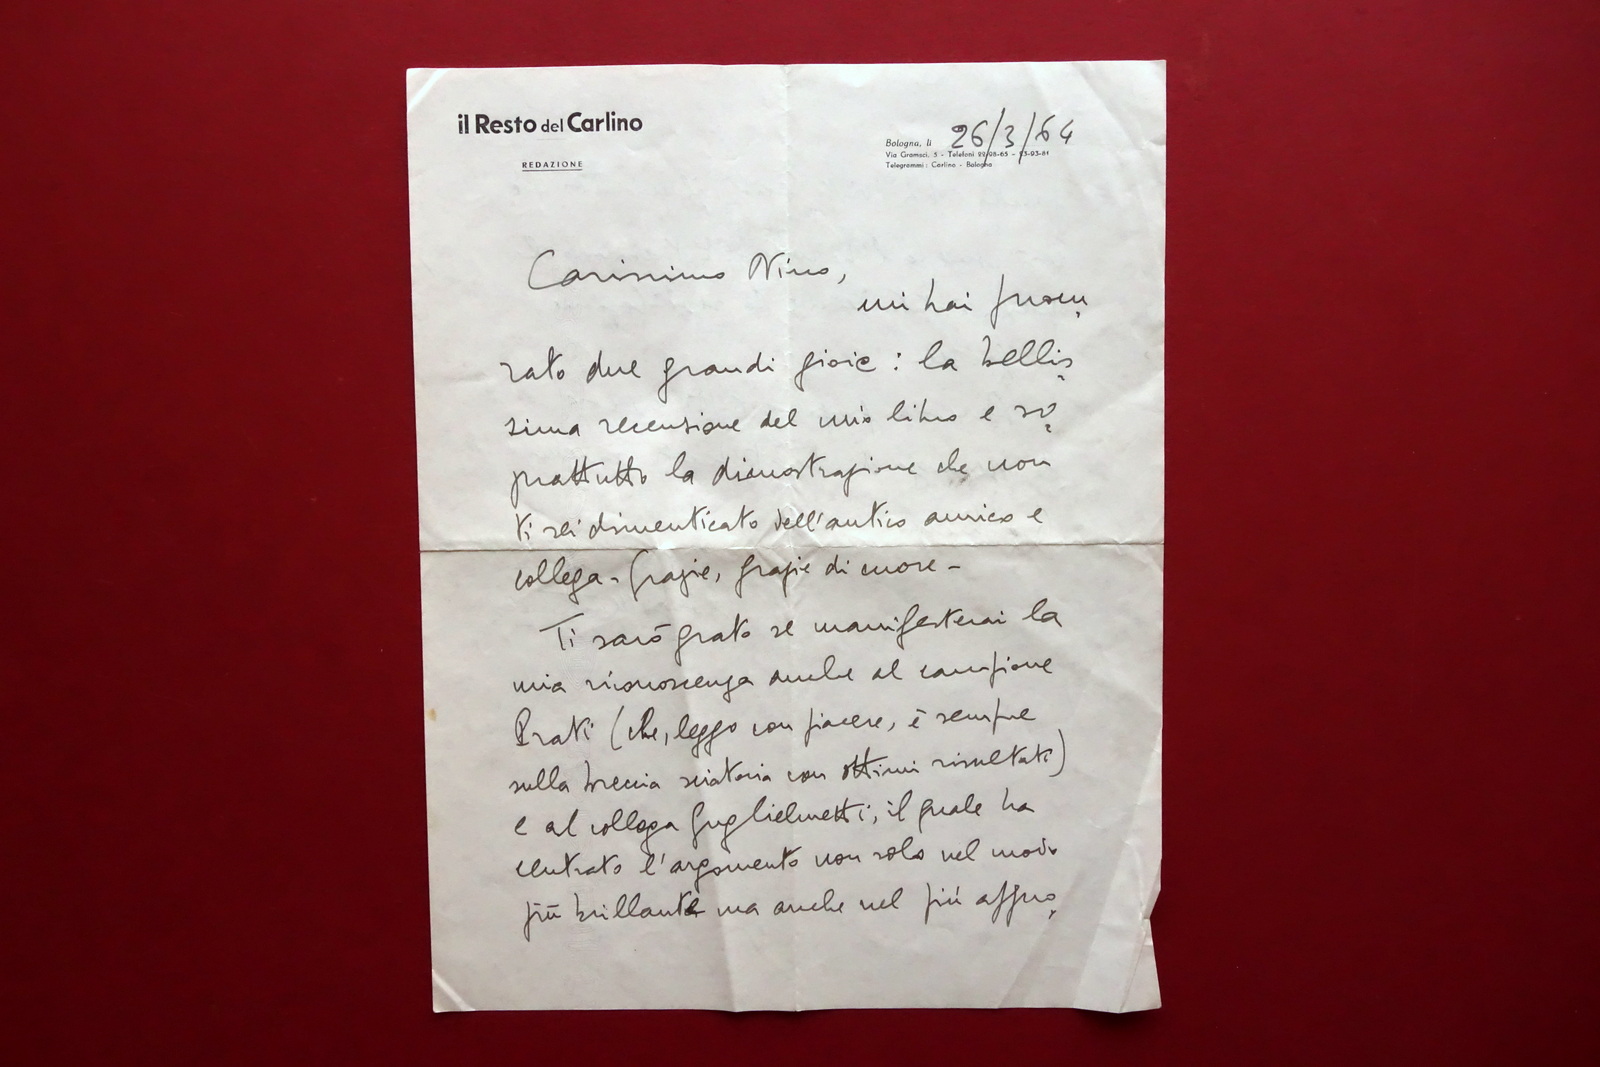 il Resto del Carlino
REDAZIONE
Bologna, li 26/3/64
Via Gramsci, 5 - Telefoni 22-98-65 - 23-93-81
Telegrammi: Carlino - Bologna
Carissimo Nino,
mi hai procu
rato due grandi gioie: la bellis
sima recensione del mio libro e so
prattutto la dimostrazione che non
ti sei dimenticato dell'antico amico e
collega - Grazie, grazie di cuore -
Ti sarò grato se manifesterai la
mia riconoscenza anche al campione
Prati (che, leggo con piacere, è sempre
sulla breccia sciatoria con ottimi risultati)
e al collega Guglielmetti, il quale ha
centrato l'argomento non solo nel modo
più brillante ma anche nel più appro